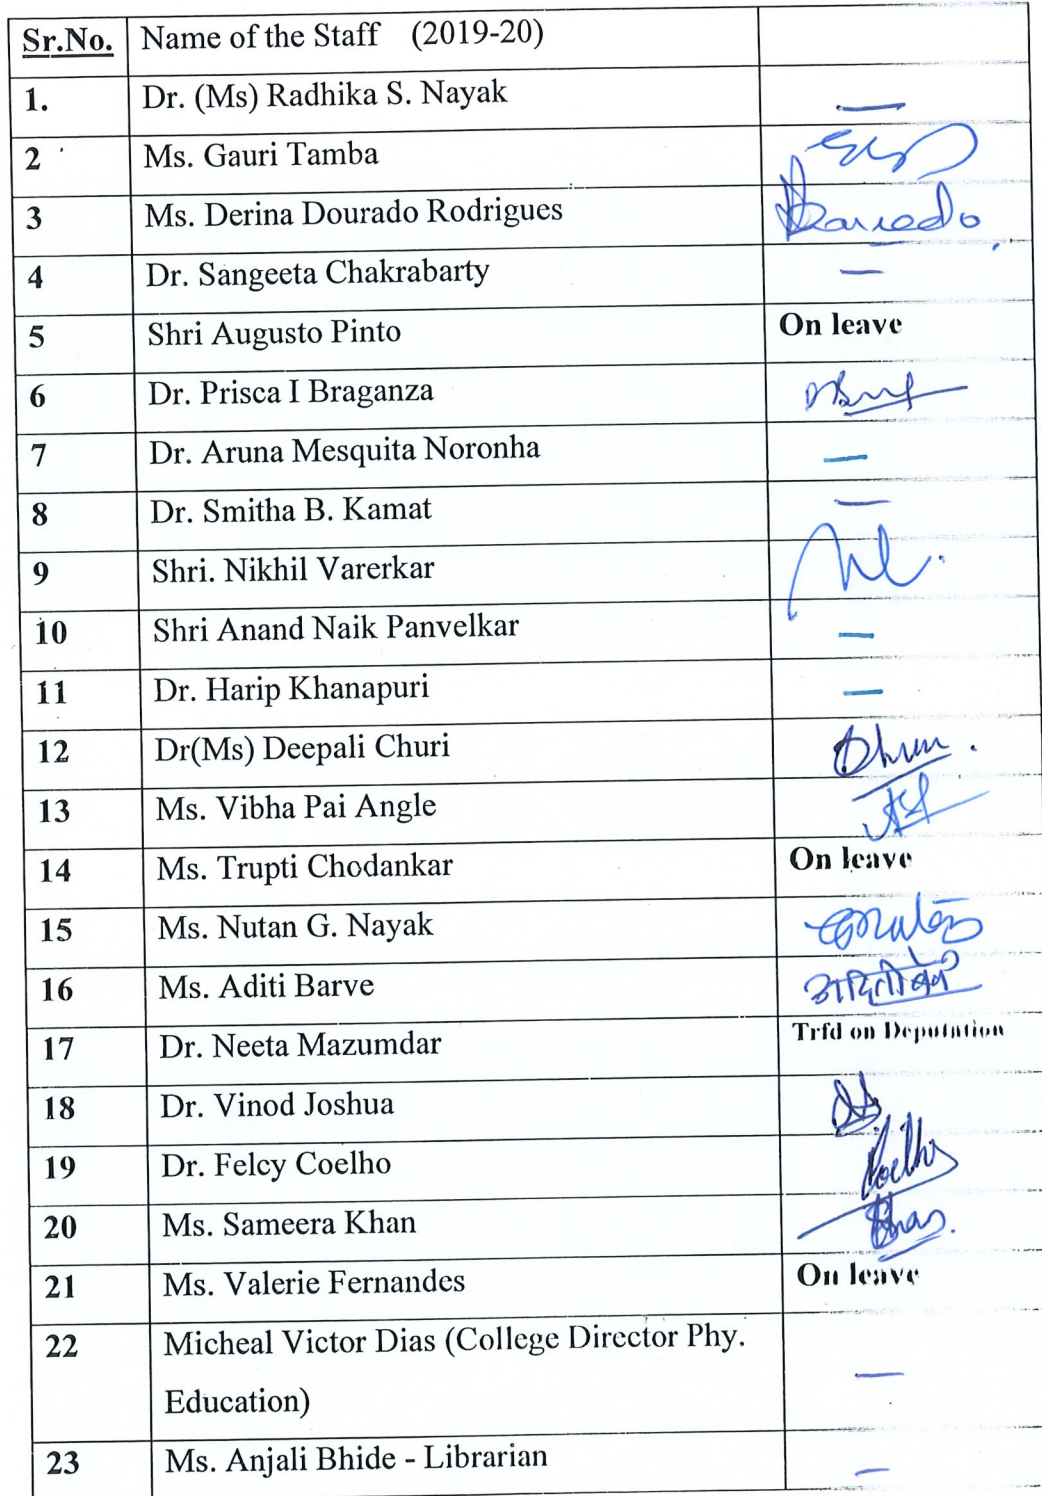 Sr.No. Name of the Staff (2019-20)
1. Dr. (Ms) Radhika S. Nayak —
2 Ms. Gauri Tamba
3 Ms. Derina Dourado Rodrigues
4 Dr. Sangeeta Chakrabarty —
5 Shri Augusto Pinto On leave
6 Dr. Prisca I Braganza
7 Dr. Aruna Mesquita Noronha —
8 Dr. Smitha B. Kamat —
9 Shri. Nikhil Varerkar
10 Shri Anand Naik Panvelkar —
11 Dr. Harip Khanapuri —
12 Dr(Ms) Deepali Churi
13 Ms. Vibha Pai Angle
14 Ms. Trupti Chodankar On leave
15 Ms. Nutan G. Nayak
16 Ms. Aditi Barve
17 Dr. Neeta Mazumdar Trfd on Deputation
18 Dr. Vinod Joshua
19 Dr. Felcy Coelho Coelho
20 Ms. Sameera Khan
21 Ms. Valerie Fernandes On leave
22 Micheal Victor Dias (College Director Phy.
Education) —
23 Ms. Anjali Bhide - Librarian —